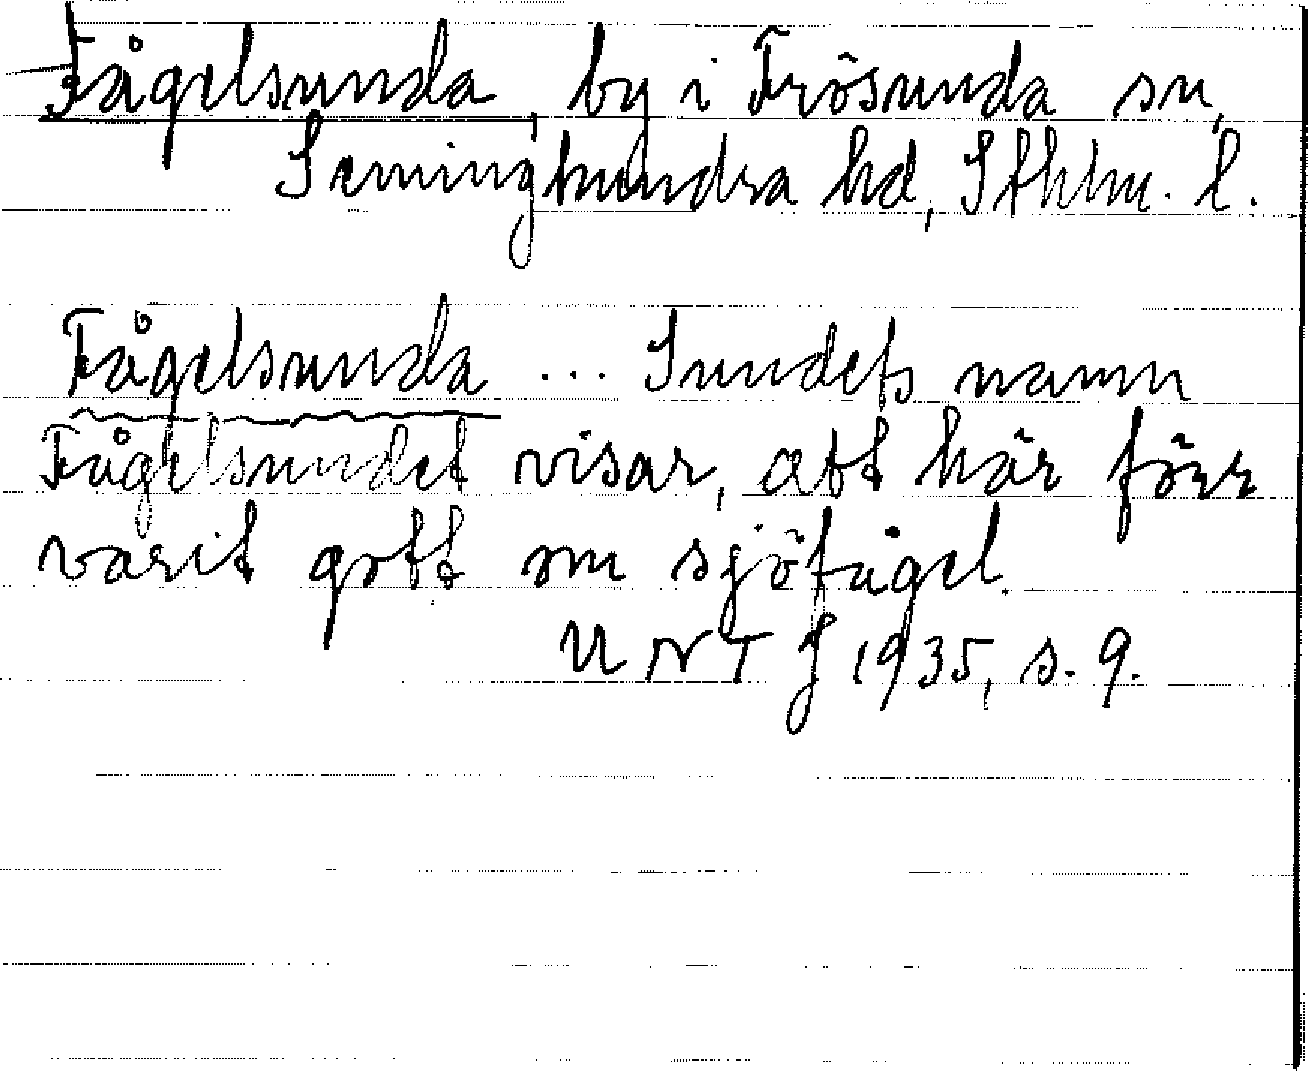 Fågelsunda, by i Frösunda sn,
Seminghundra hd, Sthlm. l.
Fågelsunda ... Sundets namn
Fågelsundet visar, att här förr
varit gott om sjöfågel.
UNT J 1935, s. 9.